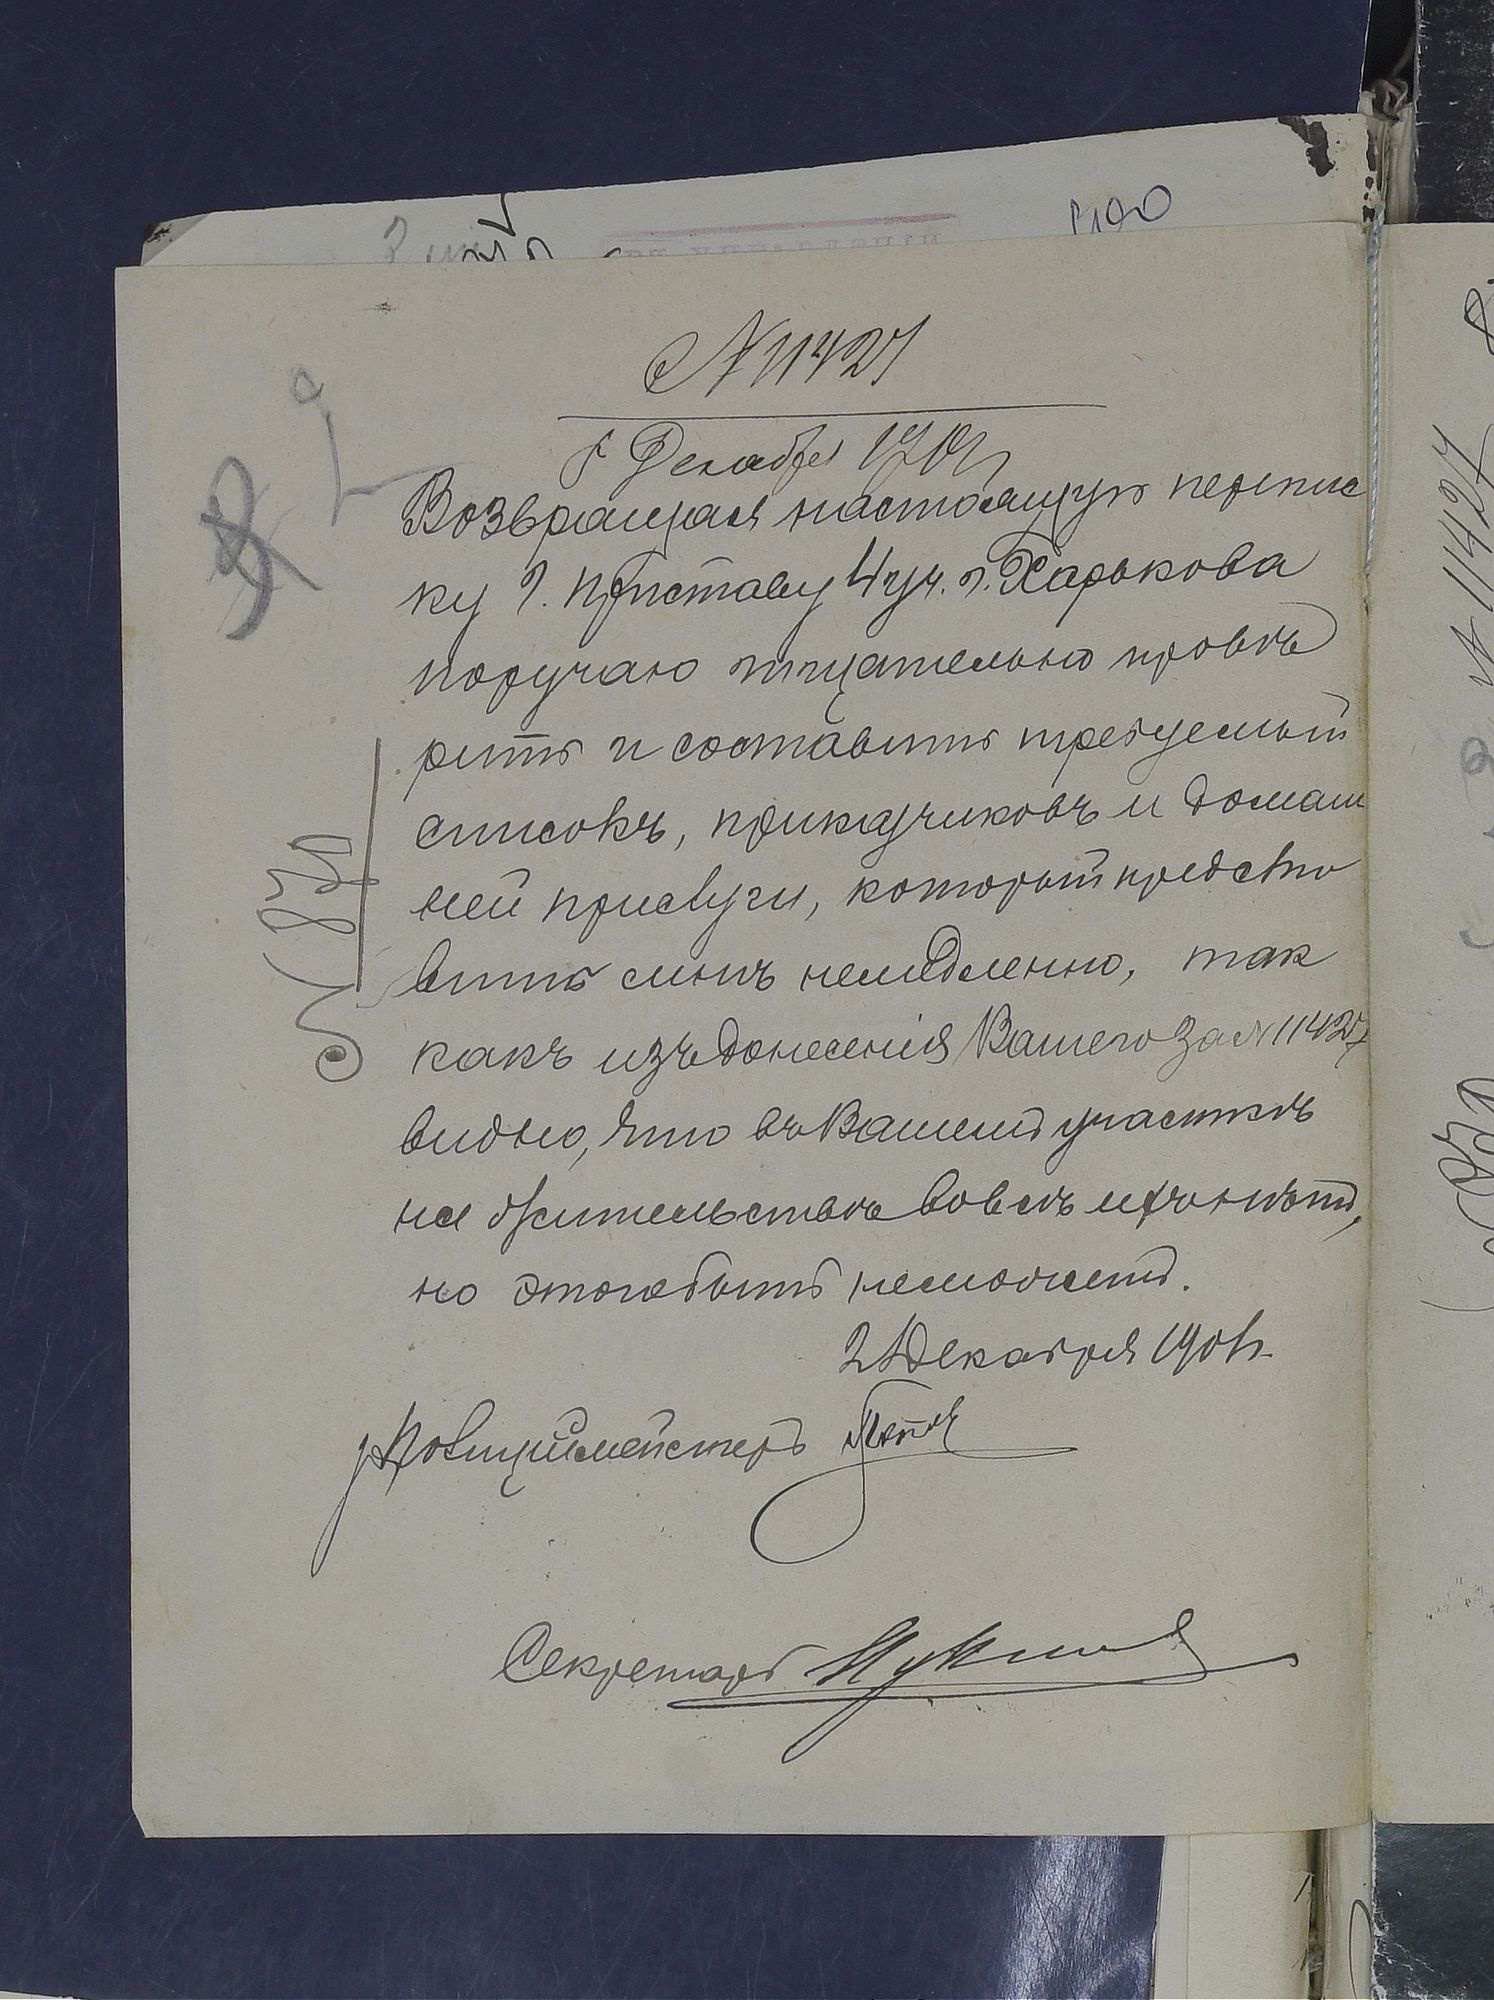 № 11427
5 Декабря 1901
Возвращая настоящую перепис
ку Г. Приставу 4 уч. г. Харькова
поручаю тщательно провѣ
рить и составить требуемый
списокъ, приказчиковъ и домаш
ней прислуги, который предста
вить мнѣ немедленно, так
какъ изъ донесенія Вашего за № 11427
видно, что въ Вашемъ участкѣ
на жительствѣ вовсе ихъ нѣтъ,
но этого быть неможетъ.
2 Декабря 1901 г.
Полиціймейстеръ
Секретарь